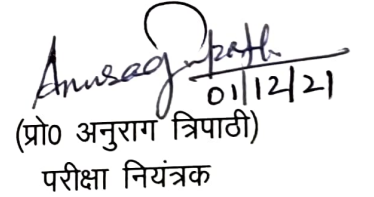 Anurag Tripathi
01/12/21
(प्रो0 अनुराग त्रिपाठी)
परीक्षा नियंत्रक